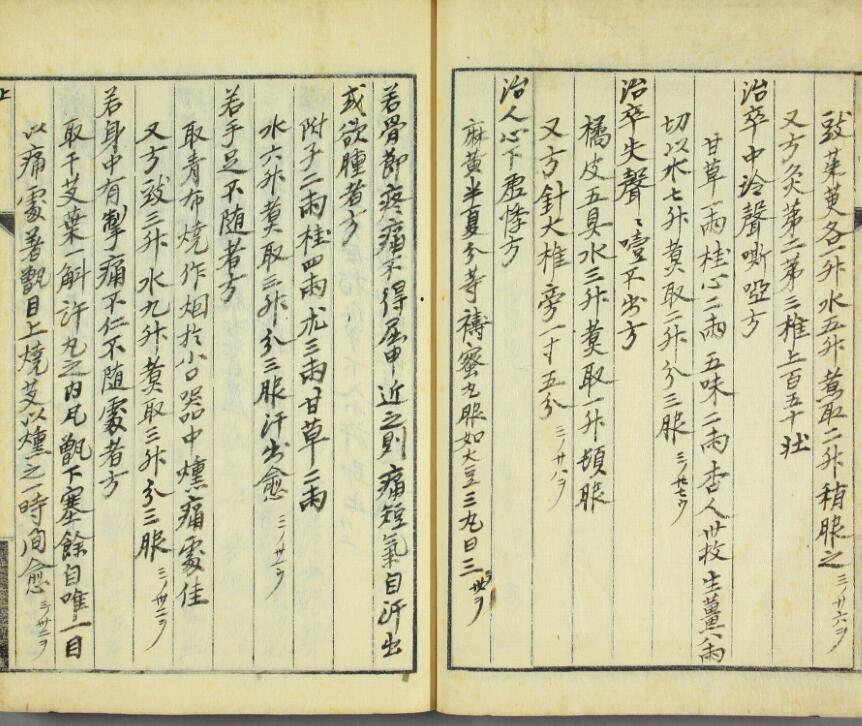 豉茱萸各一升水五升煮取二升稍服之 三ノ廿六ウ
又方灸第二第三椎上百五十壮
治卒中冷聲嘶啞方
甘草一兩桂心二兩五味二兩杏人卅枚生薑八兩
切以水七升煑取二升分三服 三ノ廿七ウ
治卒失聲〻噎不出方
橘皮五具水三升煑取一升頓服
又方針大椎旁一寸五分 三ノ廿八ウ
治人心下虚悸方
麻黄半夏分等擣蜜丸服如大豆三丸日三
若骨節疼痛不得屈申近之則痛短氣自汗出
或欲腫者方
附子二兩桂四兩朮三兩甘草二兩
水六升煑取三升分三服汗出愈 三ノ卅一ウ
若手足不随者方
取青布燒作烟於小口器中燻痛處佳
又方豉三升水九升煑取三升分三服 三ノ卅二ウ
若身中有掣痛不仁不随處者方
取干艾葉一斛許丸之内瓦甑下塞餘目唯一目
以痛處著甑目上燒艾以燻之一時間愈 三ノ卅二ウ
上